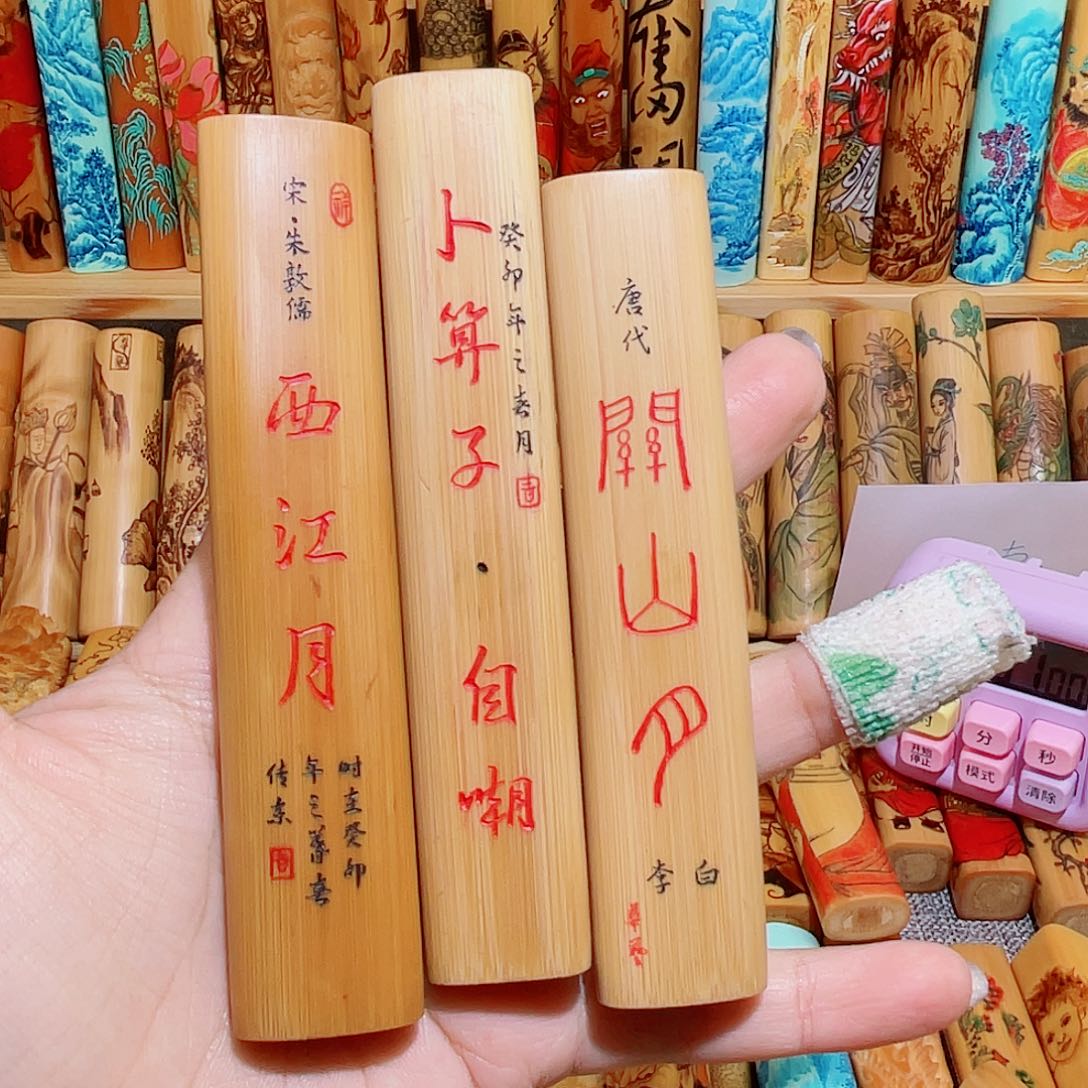 宋·朱敦儒
西江月
时在癸卯
年之暮春
传东
卜算子·自嘲
癸卯年之春月
唐代
關山月
李白
奮
分
秒
开始
停止
模式
清除
100